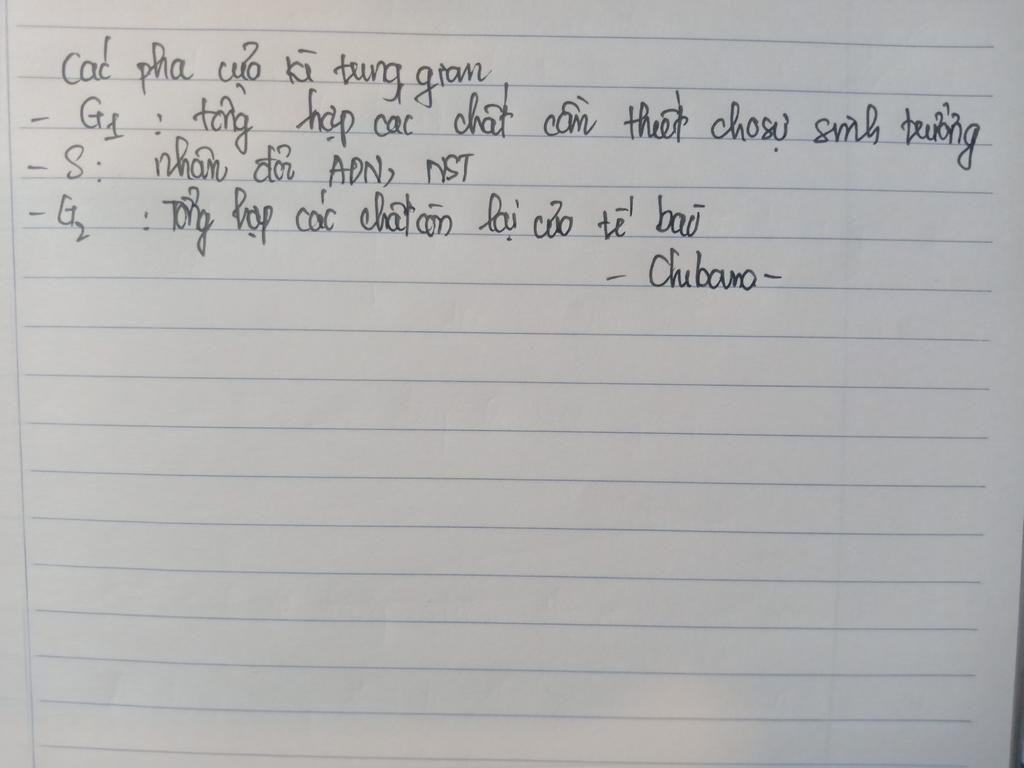 Các pha của kì trung gian
- G1 : tổng hợp các chất cần thiết cho sự sinh trưởng
- S: nhân đôi ADN, NST
- G2 : Tổng hợp các chất còn lại của tế bào
- Chibana -